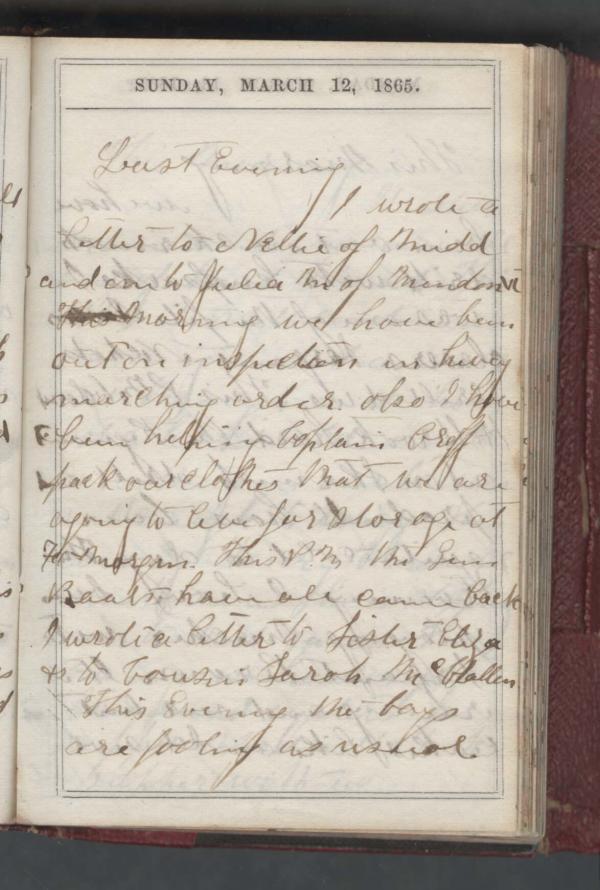 SUNDAY, MARCH 12, 1865.
Last Evening
I wrote a
letter to Nellie of Midd
and one to Julia M of Mendon Vt
This Morning we have been
out on inspection in hevey
marching order. also I have
been helping Captain
pack our clothes that we are
agoing to leve for storage at
Ft Morgan. This P.M. the Gun
Boats have all came back
I wrote a letter to Sister Eliza
& to Cousin Sarah
This Evening the boys
are fooling as usual